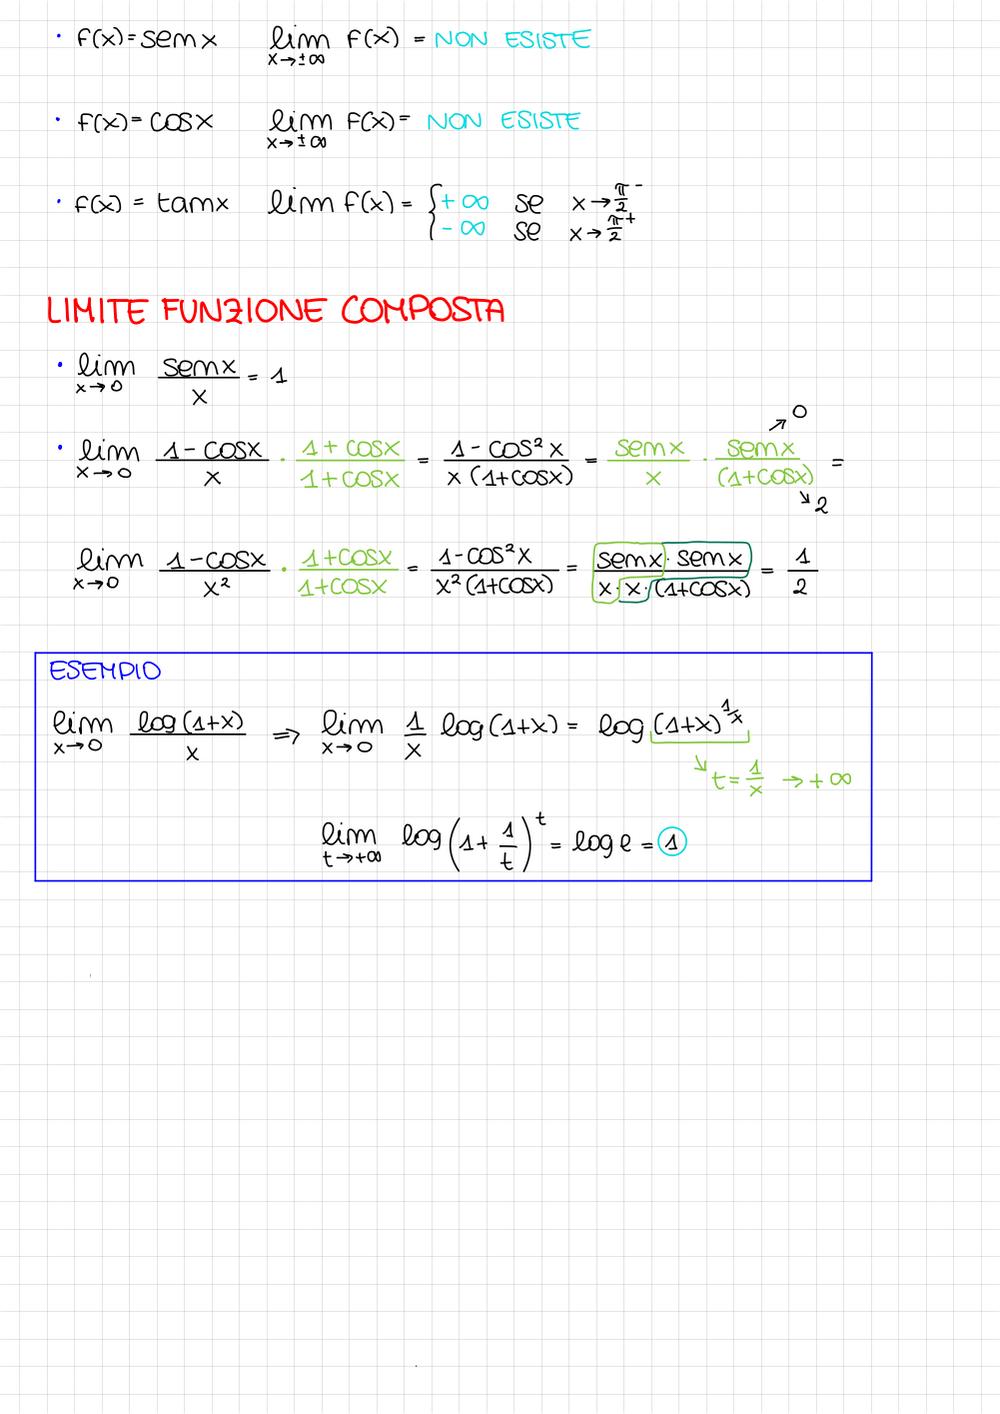 • f(x)=senx lim x→±∞ f(x) = NON ESISTE
• f(x)=cosx lim x→±∞ f(x)= NON ESISTE
• f(x) = tanx lim f(x) = { +∞ se x→π/2⁻
-∞ se x→π/2⁺
LIMITE FUNZIONE COMPOSTA
• lim x→0 senx/x = 1
• lim x→0 (1-cosx)/x · (1+cosx)/(1+cosx) = (1-cos²x)/(x(1+cosx)) = senx/x · senx/(1+cosx) = ↗0 ↘2
lim x→0 (1-cosx)/x² · (1+cosx)/(1+cosx) = (1-cos²x)/(x²(1+cosx)) = (senx·senx)/(x·x·(1+cosx)) = 1/2
ESEMPIO
lim x→0 log(1+x)/x ⇒ lim x→0 1/x log(1+x) = log(1+x)^(1/x)
↘ t=1/x → +∞
lim t→+∞ log(1+1/t)^t = log e = 1